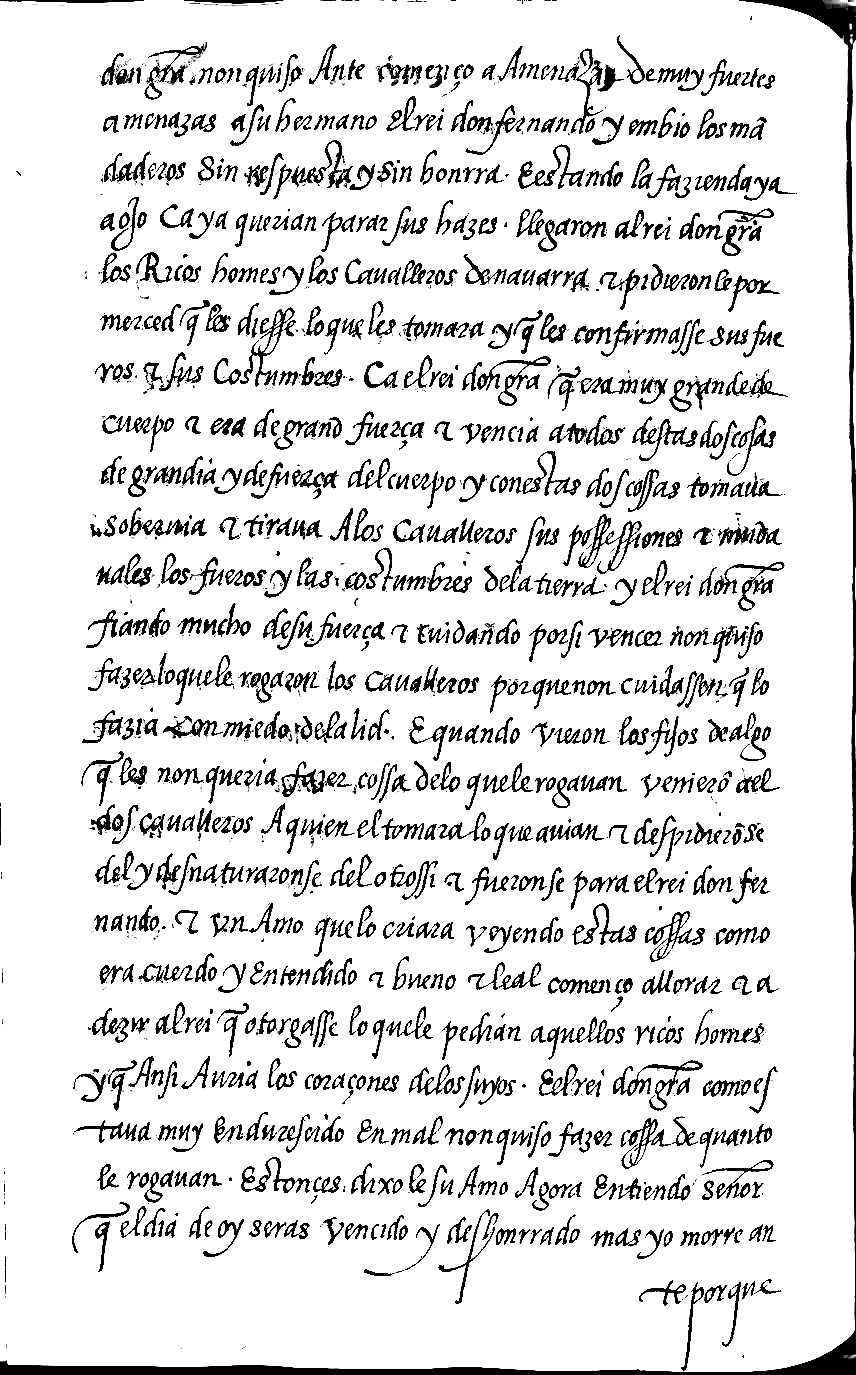 don grã. non quiso Ante començo a Amenazar de muy fuertes
amenazas a su hermano El rei don fernando y embio los mã
daderos Sin respuesta y Sin honrra. E estando la fazienda ya
a ojo Ca ya querian parar sus hazes. llegaron al rei don grã
los Ricos homes y los Cavalleros de navarra & pidieron le por
merced q̃ les diesse lo que les tomara y q̃ les confirmasse sus fue
ros & sus Costumbres. Ca el rei don grã q̃ era muy grande de
cuerpo & era de grand fuerça & vencia a todos destas dos cosas
de grandia y de fuerça del cuerpo y con estas dos cossas tomaua
sobervia & tiraua A los Cavalleros sus possessiones & muda
uales los fueros y las costumbres de la tierra. y el rei don grã
fiando mucho de su fuerça & cuidando por si vencer non quiso
fazer lo que le rogaron los Cavalleros por que non cuidassen q̃ lo
fazia con miedo de la lid. E quando vieron los fijos de algo
q̃ les non queria fazer cossa de lo que le rogauan venierõ a el
dos cavalleros A quien el tomara lo que auian & despidierõse
del y desnaturaronse del otrossi & fueronse para el rei don fer
nando. & vn Amo que lo criara veyendo estas cossas como
era cuerdo y Entendido & bueno & leal començo a llorar & a
dezir al rei q̃ otorgasse lo que le pedian aquellos ricos homes
y q̃ Ansi Auria los coraçones de los suyos. E el rei don grã como es
taua muy Endurescido En mal non quiso fazer cossa de quanto
le rogauan. Estonçes dixo le su Amo Agora Entiendo señor
q̃ el dia de oy seras vencido y deshonrrado mas yo morre an
te porque